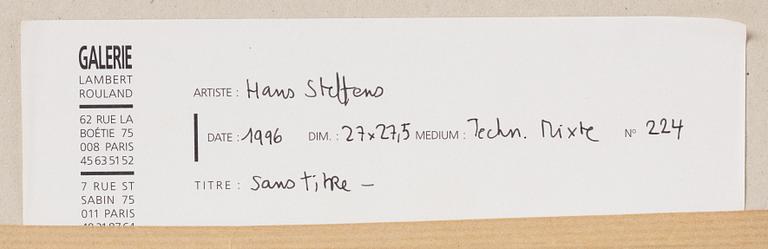 GALERIE
LAMBERT
ROULAND
62 RUE LA
BOÉTIE 75
008 PARIS
45635152
7 RUE ST
SABIN 75
011 PARIS
ARTISTE : Hans Steffens
DATE : 1996 DIM. : 27x27,5 MEDIUM : Techn. Mixte N° 224
TITRE : Sans titre —